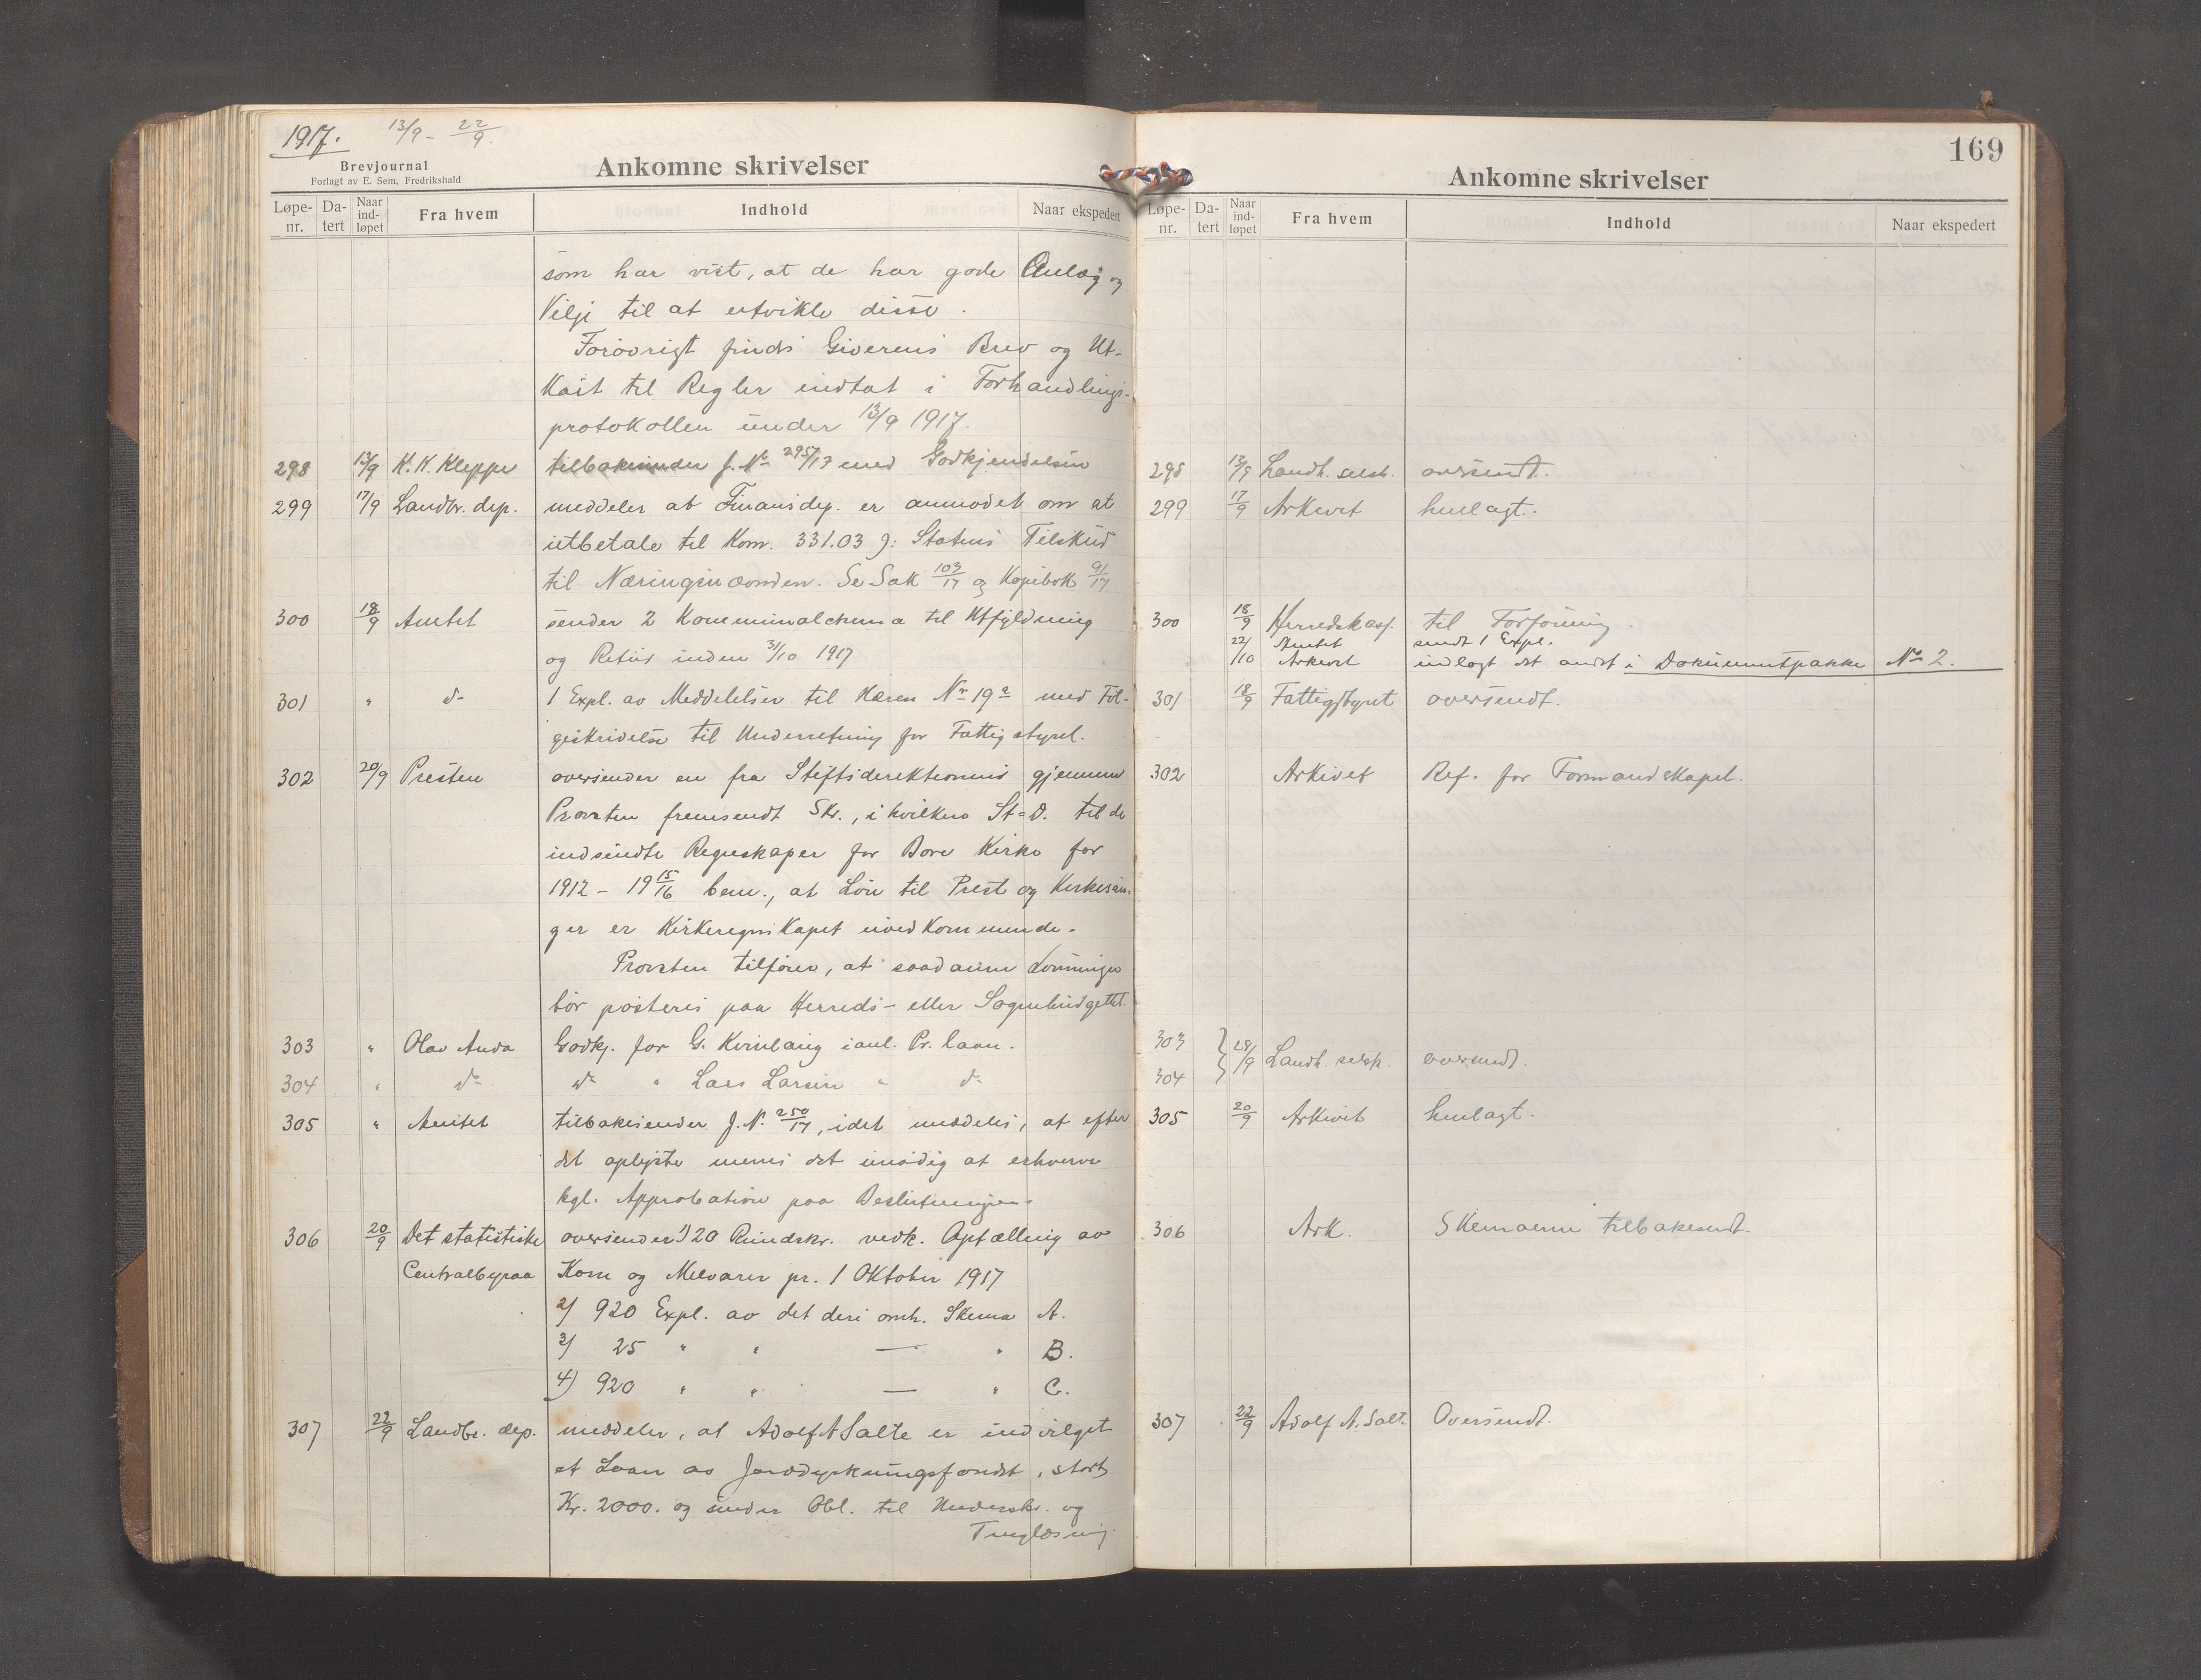 1917. 13/9 - 22/9.
Brevjournal
Forlagt av E. Sem, Fredrikshald
Ankomne skrivelser
Løpe-nr. Da-tert Naar ind-løpet Fra hvem Indhold Naar ekspedert
som har vist, at de har gode Anlæg og
Vilje til at utvikle disse.
Forøvrigt finds Giverens Brev og Ut-
kast til Regler indtat i Forhandlings-
protokollen under 13/9 1917.
298 13/9 K. K. Kleppe tilbakesender J. No 295/17 med Godkjendelsen
299 17/9 Landbr. dep. meddeler at Finansdep. er anmodet om at
utbetale til Kom. 331.03 ɔ: Statens Tilskud
til Næringsnævnden. Se Sak 103/17 og Kopibok 91/17
300 18/9 Amtet sender 2 Kommunalchema til Utfyldning
og Retur inden 31/10 1917
301 " do 1 Expl. av Meddelelser til Hæren Nr 19a med Føl-
geskrivelse til Underretning for Fattigstyret.
302 20/9 Presten oversender en fra Stiftsdirektionens gjennem
Provsten fremsendt Skr., i hvilken St=D. til de
indsendte Regnskaper for Bore Kirke for
1912 - 19 15/16 bem., at Løn til Prest og Kirkesan-
ger er Kirkeregnskapet uvedkommende.
Provsten tilføier, at saadanne Lønninger
bør posteres paa Herreds- eller Sognebudgettet.
303 " Olav Anda Godkj. for G. Kvinlaug i anl. Pr. laan.
304 " do do " Lars Larsen " do
305 " Amtet tilbakesender J. N. 250/17, idet meddeles, at efter
det oplyste menes det unødig at erhverve
kgl. Approbation paa Beslutningen.
306 20/9 Det statistiske oversender 1) 20 Rundskr. vedk. Optælling av
Centralbyraa Korn og Melvarer pr. 1 Oktober 1917
2) 920 Expl. av det deri omh. Skema A.
3) 25 " " — " B.
4) 920 " " — " C.
307 22/9 Landbr. dep. meddeler, at Adolf A Salte er indvilget
et Laan av Jorddyrkningsfondet, stort
Kr. 2000. og sender Obl. til Underskr. og
Tinglæsning.
169
Ankomne skrivelser
Løpe-nr. Da-tert Naar ind-løpet Fra hvem Indhold Naar ekspedert
298 13/9 Landh. selsk. oversendt.
299 17/9 Arkivet henlagt.
300 18/9 Herredskass. til Forføining.
22/10 Amtet sendt 1 Expl.
Arkivet indlagt det andet i Dokumentpakke No 2.
301 18/9 Fattigstyret oversendt.
302 Arkivet Ref. for Formandskapet.
303
304 } 28/9 Landh. selsk. oversendt.
305 20/9 Arkivet henlagt.
306 Ark. Skemaerne tilbakesendt.
307 22/9 Adolf A. Salt. Oversendt.